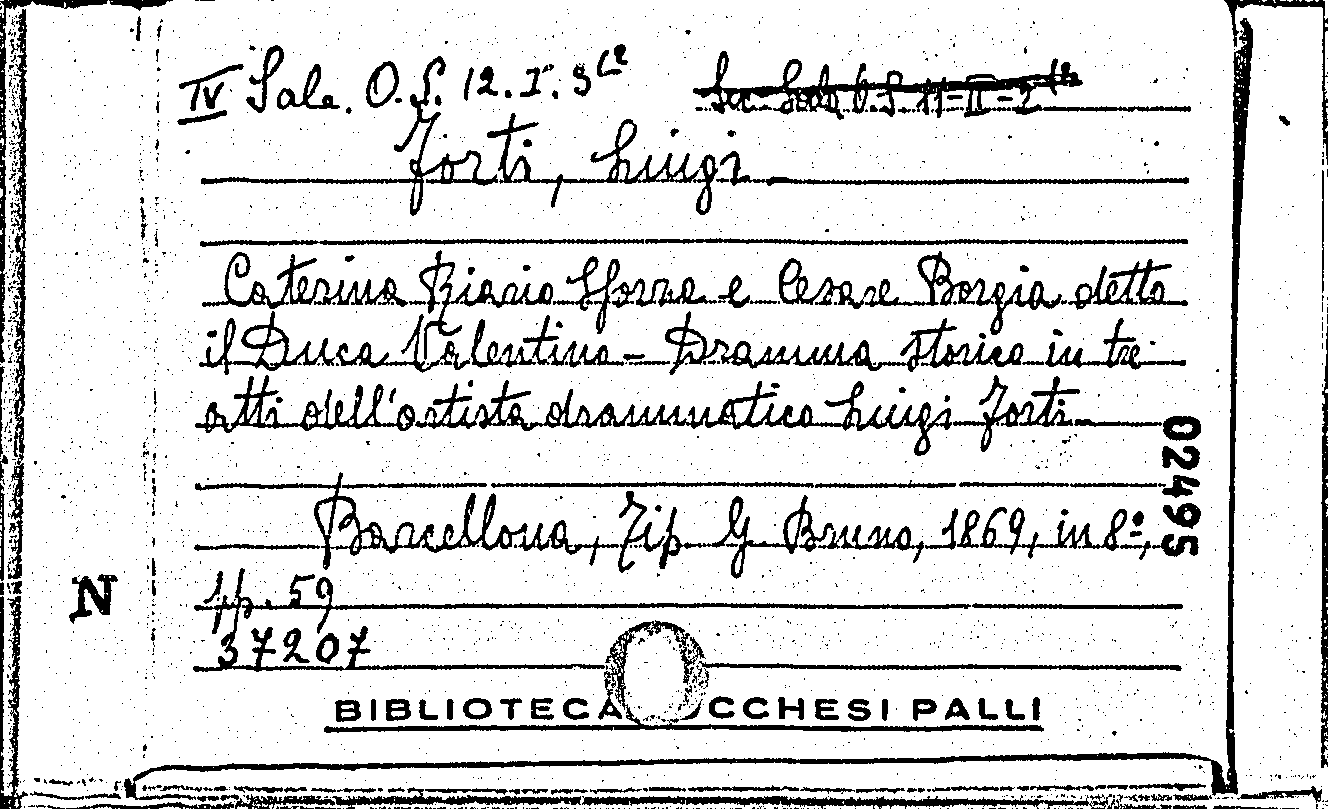 IV Sala. O.S. 12. I. 3
Forti, Luigi.
Caterina Riario Sforza e Cesare Borgia detto
il Duca Valentino - Dramma storico in tre
atti dell'artista drammatico Luigi Forti.
Barcellona, Tip. G. Bruno, 1869, in 8º,
pp. 59
37207
02495
N
BIBLIOTECA CCHESI PALLI